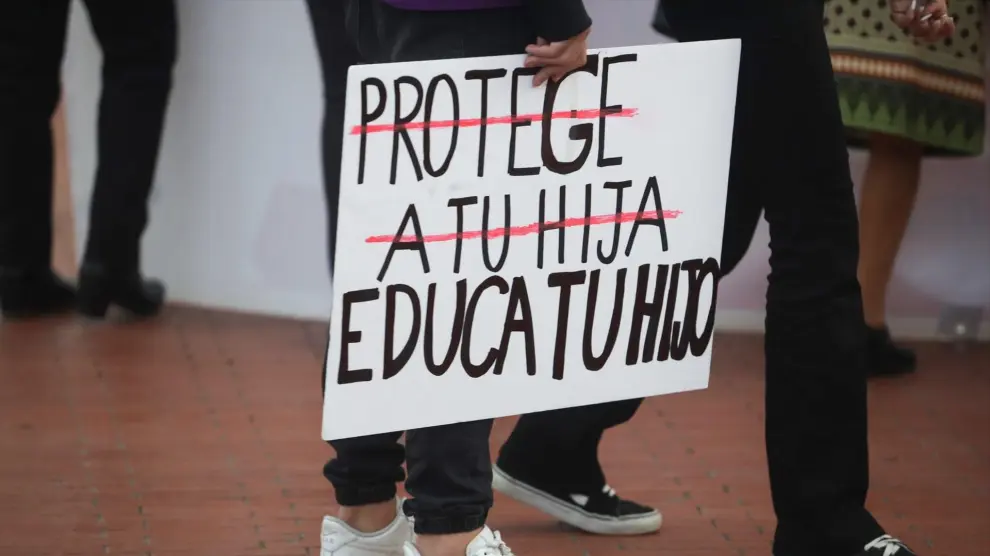 PROTEGE
A TU HIJA
EDUCA TU HIJO